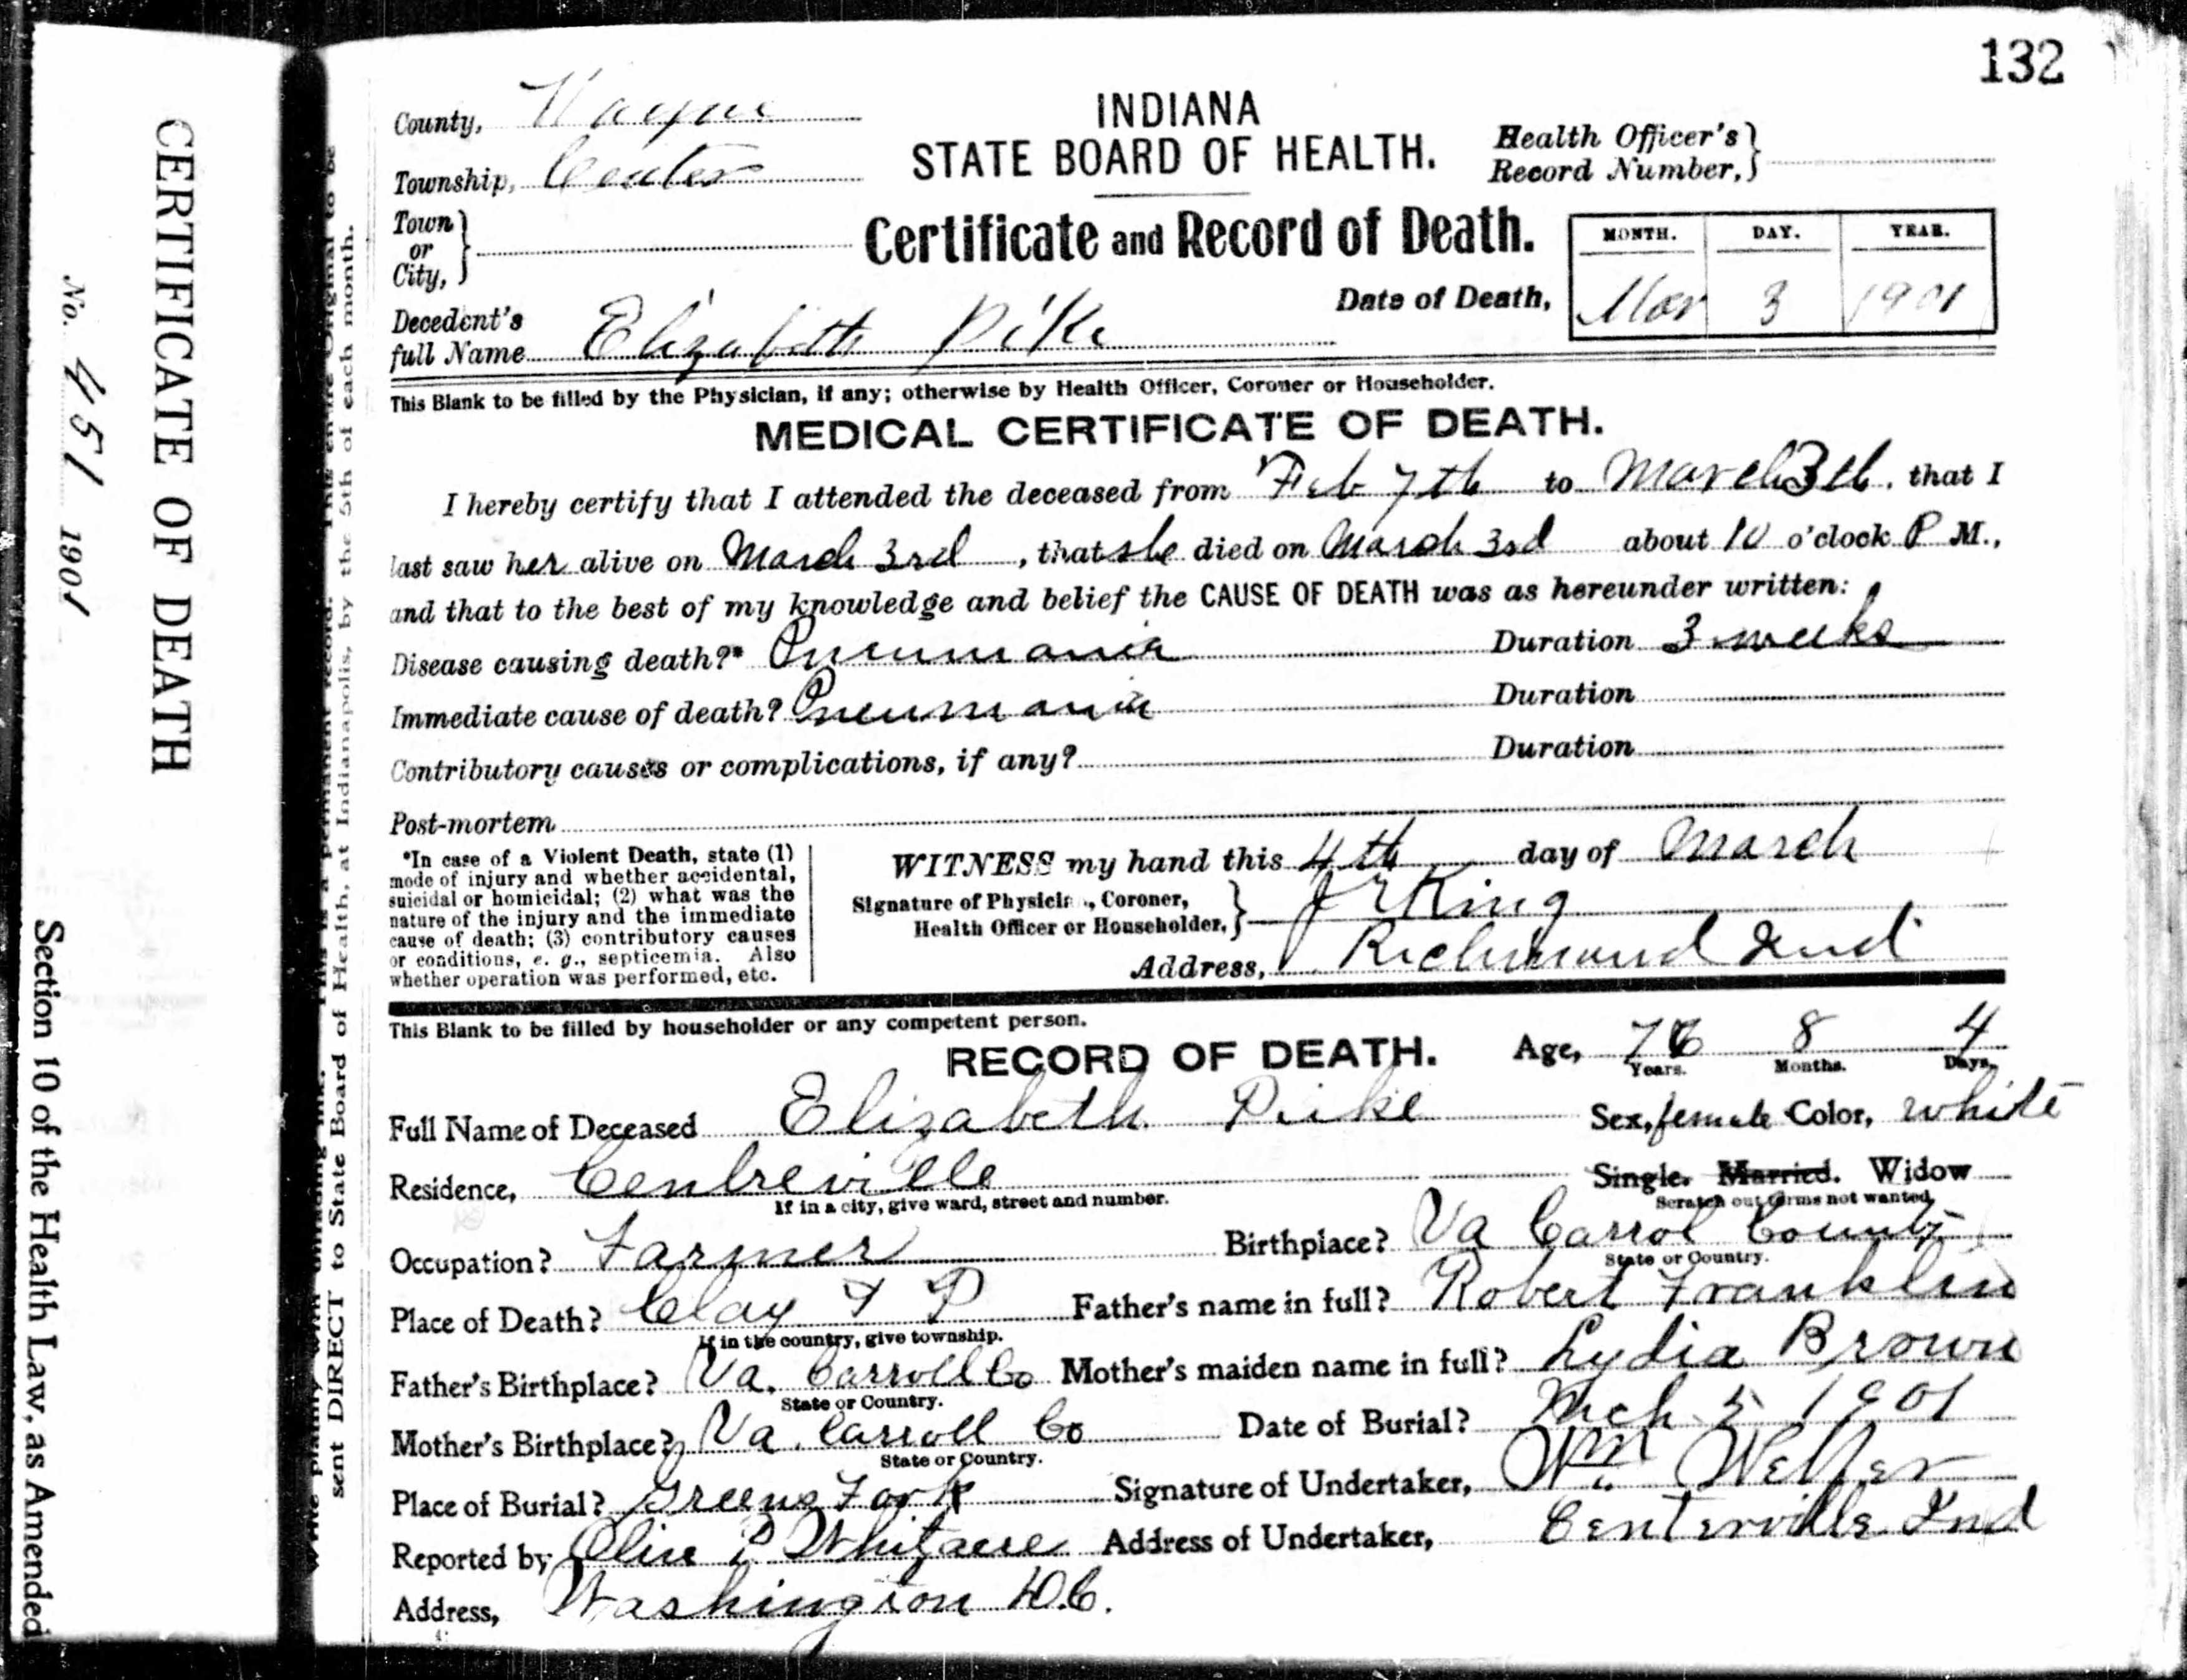 132
CERTIFICATE OF DEATH
No. 451 1901
Section 10 of the Health Law, as Amended
sent DIRECT to State Board of Health, at Indianapolis, by the 5th of each month.
County, Wayne
Township, Center
Town or City,
INDIANA
STATE BOARD OF HEALTH.
Health Officer's Record Number,
Certificate and Record of Death.
MONTH. DAY. YEAR.
Date of Death, Mar 3 1901
Decedent's full Name Elizabeth Pike
This Blank to be filled by the Physician, if any; otherwise by Health Officer, Coroner or Householder.
MEDICAL CERTIFICATE OF DEATH.
I hereby certify that I attended the deceased from Feb 7th to March 3th, that I
last saw her alive on March 3rd, that she died on March 3rd about 10 o'clock P M.,
and that to the best of my knowledge and belief the CAUSE OF DEATH was as hereunder written:
Disease causing death?* Pneumonia Duration 3 weeks
Immediate cause of death? Pneumonia Duration
Contributory causes or complications, if any? Duration
Post-mortem
*In case of a Violent Death, state (1)
mode of injury and whether accidental,
suicidal or homicidal; (2) what was the
nature of the injury and the immediate
cause of death; (3) contributory causes
or conditions, e. g., septicemia. Also
whether operation was performed, etc.
WITNESS my hand this 4th day of March
Signature of Physician, Coroner,
Health Officer or Householder, J E King
Address, Richmond Ind
This Blank to be filled by householder or any competent person.
RECORD OF DEATH. Age, 76 8 4
Years. Months. Days.
Full Name of Deceased Elizabeth Pike Sex, female Color, white
Residence, Centreville Single. Married. Widow
If in a city, give ward, street and number. Scratch out terms not wanted.
Occupation? Farmer Birthplace? Va Carrol County
State or Country.
Place of Death? Clay T P Father's name in full? Robert Franklin
If in the country, give township.
Father's Birthplace? Va. Carroll Co Mother's maiden name in full? Lydia Brown
State or Country.
Mother's Birthplace? Va. Carroll Co Date of Burial? Mch 5 1901
State or Country.
Place of Burial? Greens Fork Signature of Undertaker, Wm. Weller
Reported by P Address of Undertaker, Centerville Ind
Address, Washington D.C.